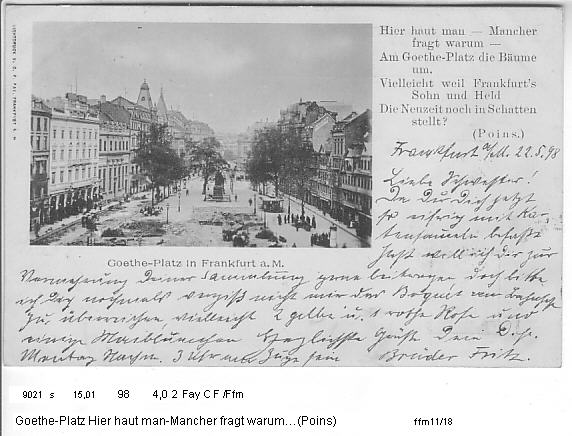 Hier haut man — Mancher
fragt warum —
Am Goethe-Platz die Bäume
um.
Vielleicht weil Frankfurt's
Sohn und Held
Die Neuzeit noch in Schatten
stellt?
(Poins.)
Frankfurt a/M. 22.5.98
Liebe Schwester!
Da Du Dich jetzt
so eifrig mit Kar-
tensammeln befaßt
so will ich Dir zur
Goethe-Platz in Frankfurt a. M.
Vermehrung Deiner Sammlung gerne beitragen doch bitte
ich Dich nochmals vergiß nicht mir das Boquet am Bahnhof
zu überreichen, vielleicht 2 gelbe u. 1 rothe Rose und
einige Maiblümchen Herzlichste Grüße Dein
Montag Nachm. 3 Uhr am Zuge sein Bruder Fritz.
9021 s 15,01 98 4,0 2 Fay C F /Ffm
Goethe-Platz Hier haut man-Mancher fragt warum...(Poins) ffm11/18